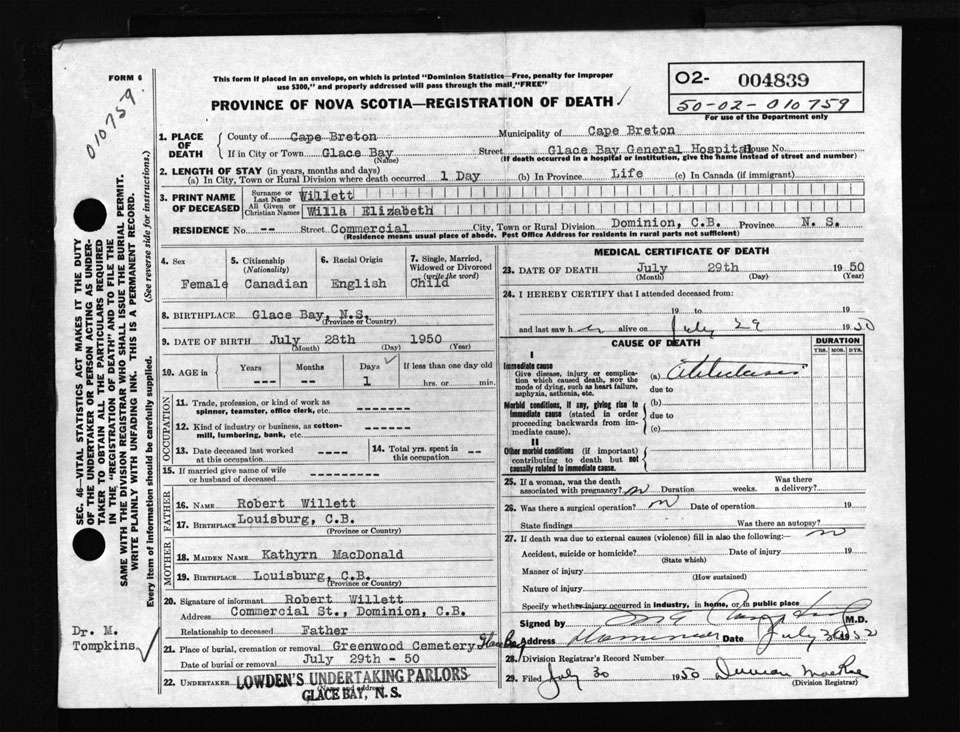 FORM 6
This form if placed in an envelope, on which is printed "Dominion Statistics—Free, penalty for improper
use $300," and properly addressed will pass through the mail "FREE"
PROVINCE OF NOVA SCOTIA—REGISTRATION OF DEATH
O2- 004839
50-02-010759
For use of the Department only
010759
1. PLACE OF DEATH
County of Cape Breton Municipality of Cape Breton
If in City or Town Glace Bay Street Glace Bay General Hospital House No.
(Name) (If death occurred in a hospital or institution, give the name instead of street and number)
2. LENGTH OF STAY (in years, months and days)
(a) In City, Town or Rural Division where death occurred 1 Day (b) In Province Life (c) In Canada (if immigrant)
3. PRINT NAME OF DECEASED
Surname or Last Name Willett
All Given or Christian Names Willa Elizabeth
RESIDENCE No. -- Street Commercial City, Town or Rural Division Dominion, C.B. Province N. S.
(Residence means usual place of abode. Post Office Address for residents in rural parts not sufficient)
4. Sex
Female
5. Citizenship
(Nationality)
Canadian
6. Racial Origin
English
7. Single, Married,
Widowed or Divorced
(write the word)
Child
8. BIRTHPLACE Glace Bay, N.S.
(Province or Country)
9. DATE OF BIRTH July 28th 1950
(Month) (Day) (Year)
10. AGE in
Years Months Days If less than one day old
--- -- 1 hrs. or min.
OCCUPATION
11. Trade, profession, or kind of work as
spinner, teamster, office clerk, etc. -------
12. Kind of industry or business, as cotton-
mill, lumbering, bank, etc. ------
13. Date deceased last worked
at this occupation
14. Total yrs. spent in
this occupation --
15. If married give name of wife
or husband of deceased ---------
FATHER
16. NAME Robert Willett
17. BIRTHPLACE Louisburg, C.B.
(Province or Country)
MOTHER
18. MAIDEN NAME Kathyrn MacDonald
19. BIRTHPLACE Louisburg, C.B.
(Province or Country)
20. Signature of informant Robert Willett
Address Commercial St., Dominion, C.B.
Relationship to deceased Father
21. Place of burial, cremation or removal Greenwood Cemetery Glace Bay
Date of burial or removal July 29th - 50
22. UNDERTAKER LOWDEN'S UNDERTAKING PARLORS
GLACE BAY, N. S.
MEDICAL CERTIFICATE OF DEATH
23. DATE OF DEATH July 29th 1950
(Month) (Day) (Year)
24. I HEREBY CERTIFY that I attended deceased from:
19 to 19
and last saw her alive on July 29 1950
CAUSE OF DEATH
DURATION
YRS. MOS. DYS.
I
Immediate cause
Give disease, injury or complica-
tion which caused death, NOT the
mode of dying, such as heart failure,
asphyxia, asthenia, etc.
(a)
due to
Morbid conditions, if any, giving rise to
immediate cause (stated in order
proceeding backwards from im-
mediate cause).
(b)
due to
(c)
II
Other morbid conditions (if important)
contributing to death but not
causally related to immediate cause.
25. If a woman, was the death
associated with pregnancy? no Duration weeks. Was there
a delivery?
26. Was there a surgical operation? no Date of operation 19
State findings Was there an autopsy?
27. If death was due to external causes (violence) fill in also the following:— no
Accident, suicide or homicide? Date of injury 19
(State which)
Manner of injury
(How sustained)
Nature of injury
Specify whether injury occurred in industry, in home, or in public place
Signed by M.D.
Address Dominion Date July
28. Division Registrar's Record Number
29. Filed July 30 1950 Duncan
(Division Registrar)
SEC. 46—VITAL STATISTICS ACT MAKES IT THE DUTY
OF THE UNDERTAKER OR PERSON ACTING AS UNDER-
TAKER TO OBTAIN ALL THE PARTICULARS REQUIRED
IN THE "REGISTRATION OF DEATH" AND TO FILE THE
SAME WITH THE DIVISION REGISTRAR WHO SHALL ISSUE THE BURIAL PERMIT.
WRITE PLAINLY WITH UNFADING INK. THIS IS A PERMANENT RECORD.
Every item of information should be carefully supplied. (See reverse side for instructions.)
Dr. M.
Tompkins